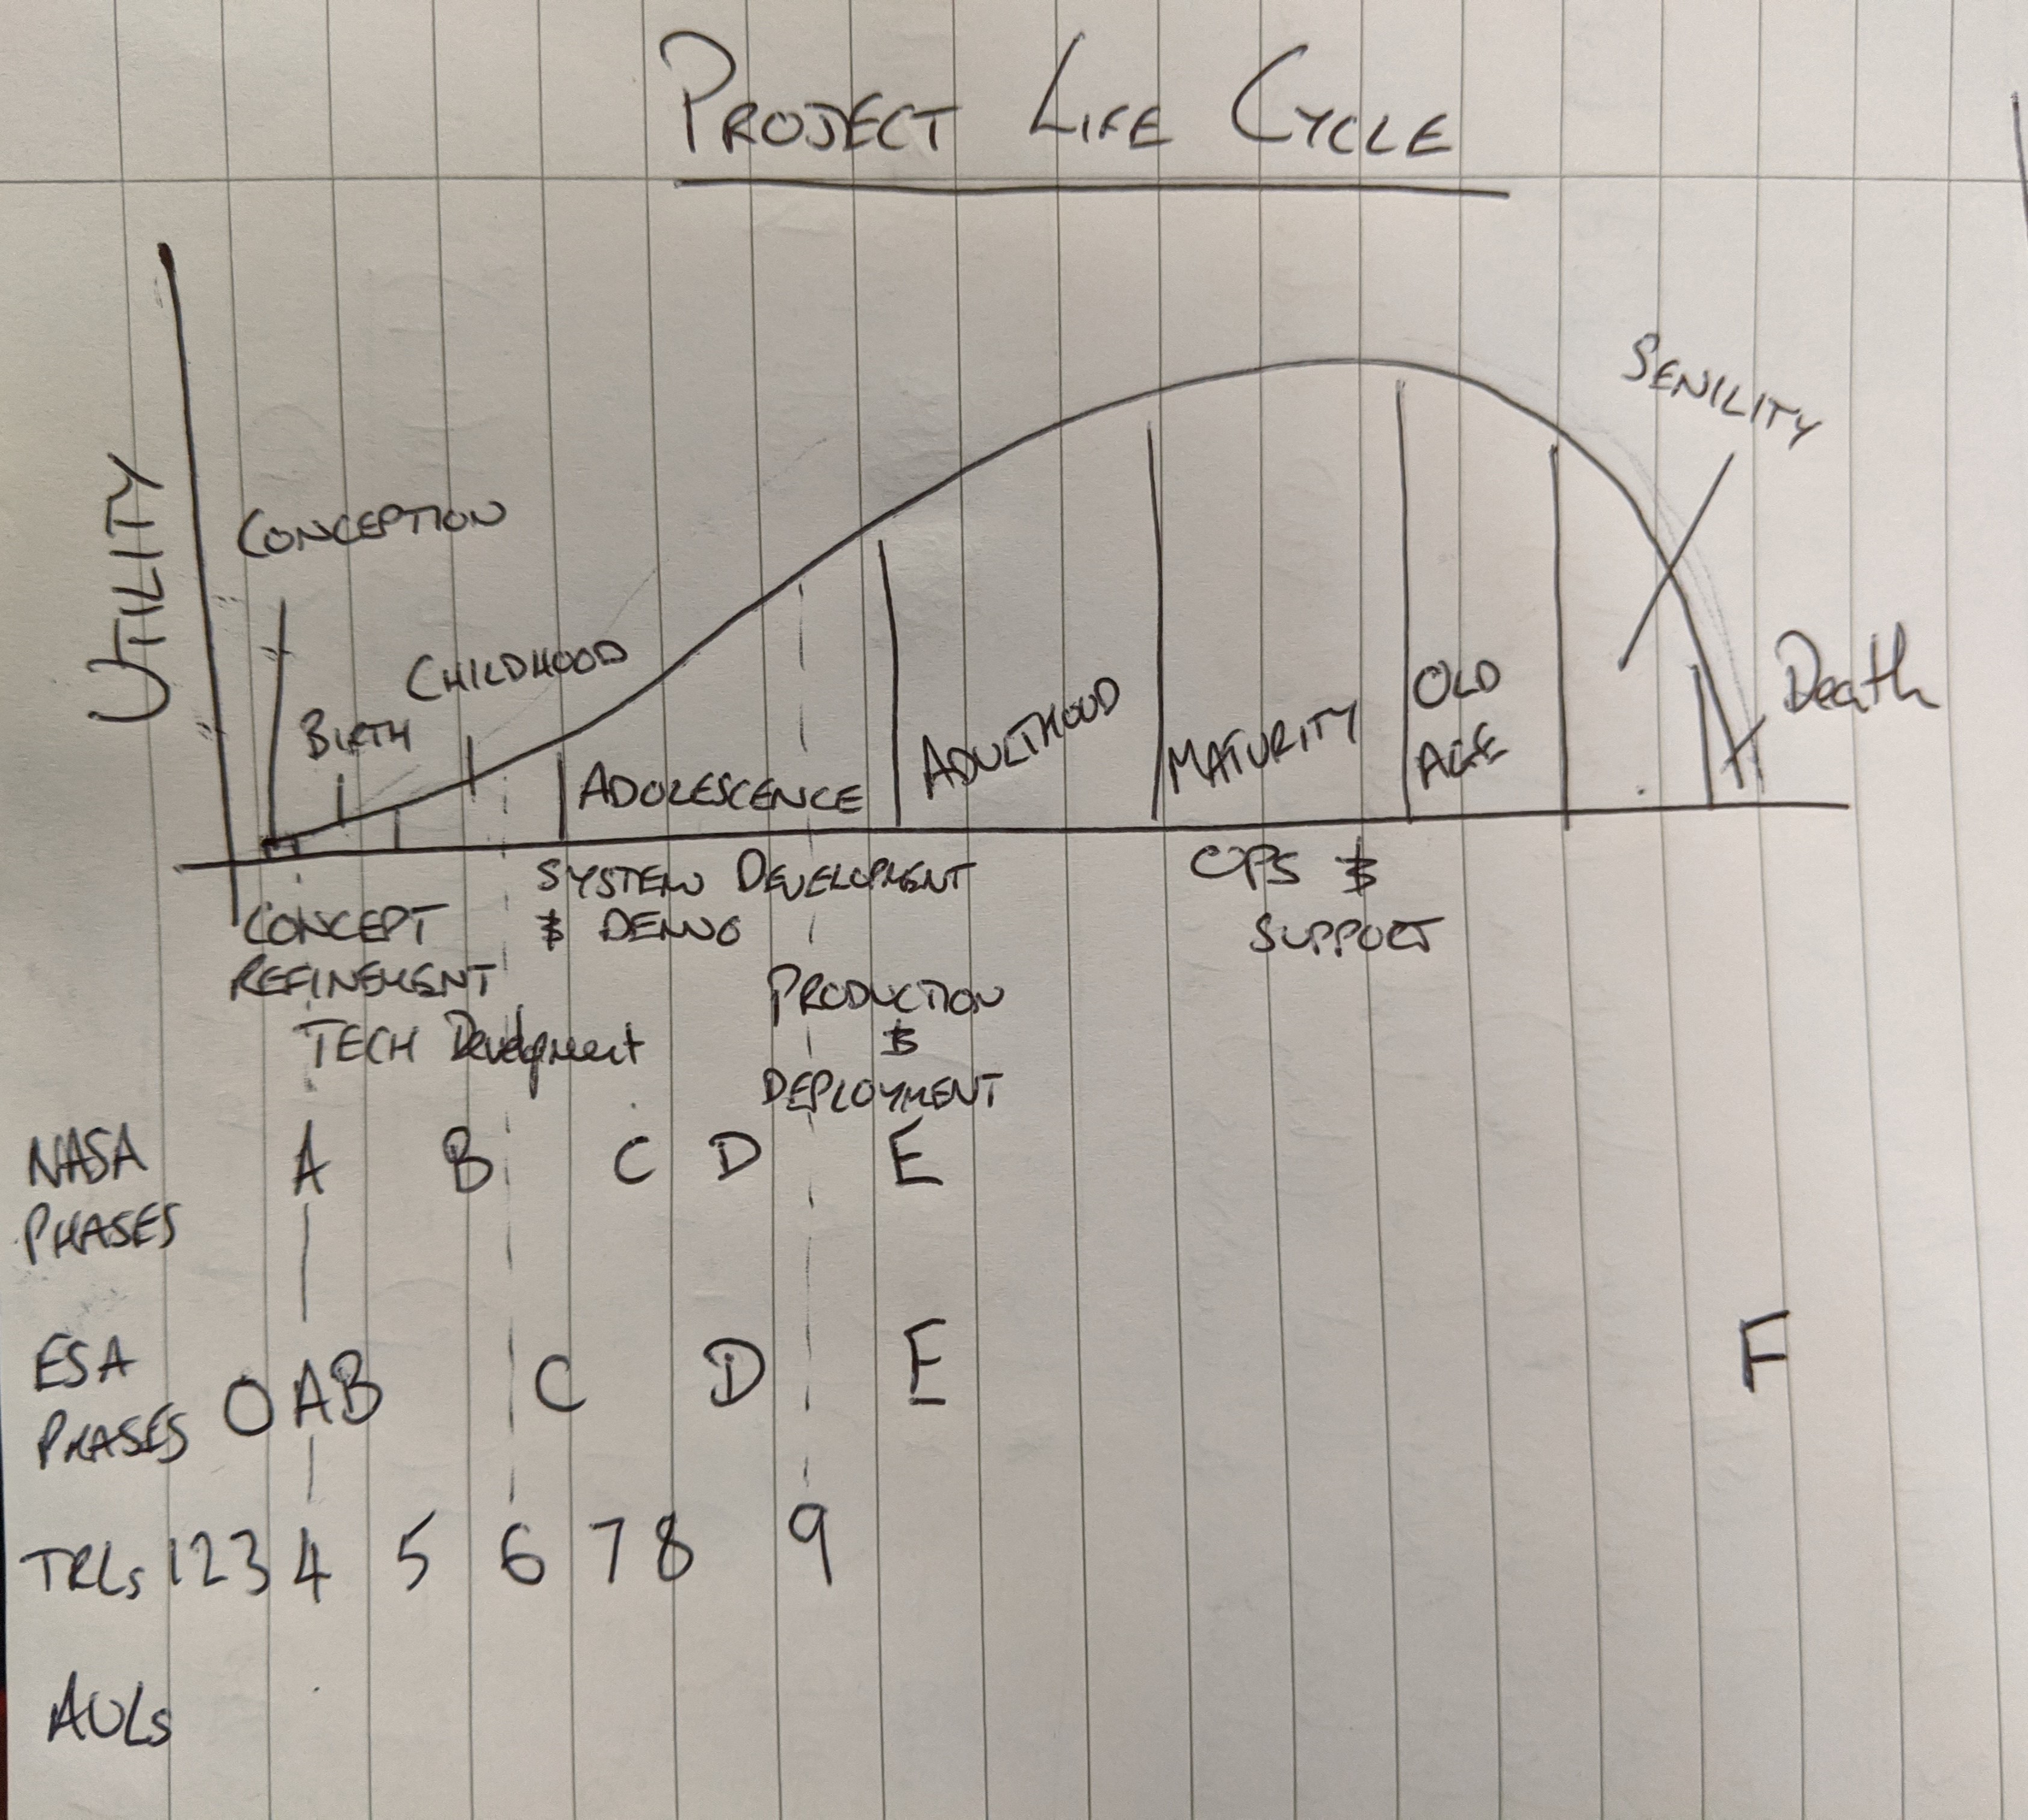 PROJECT LIFE CYCLE
UTILITY
CONCEPTION
BIRTH
CHILDHOOD
ADOLESCENCE
ADULTHOOD
MATURITY
OLD
AGE
SENILITY
Death
CONCEPT
REFINEMENT
TECH Development
SYSTEM DEVELOPMENT
& DEMO
PRODUCTION
&
DEPLOYMENT
OPS &
SUPPORT
NASA
PHASES
A B C D E
ESA
PHASES
O A B C D E F
TRLs 1 2 3 4 5 6 7 8 9
AULs